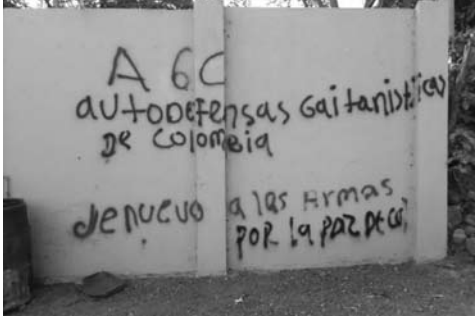 AGC
AUTODEFENSAS Gaitanisticas
DE COLOMBIA
denuevo a las Armas
POR la PAZ DE Col